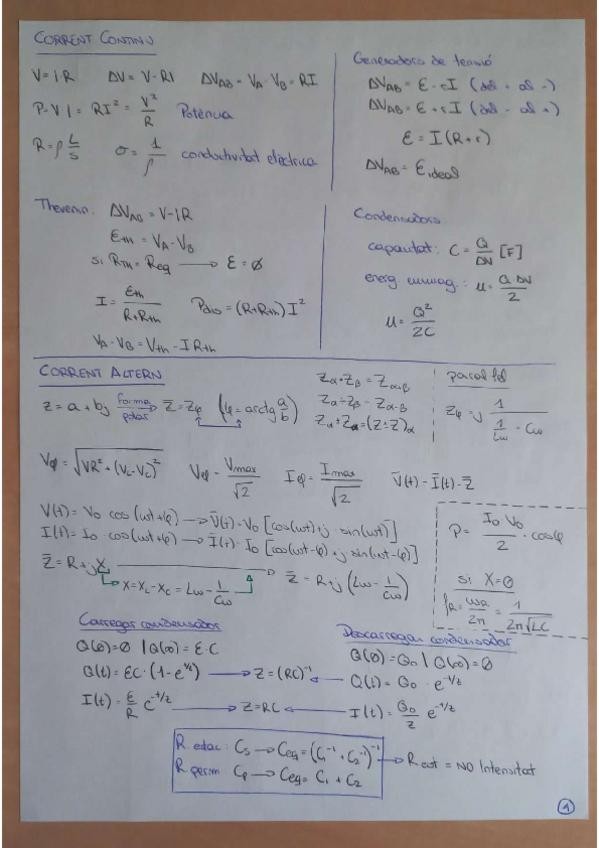 CORRENT CONTINU
V = I·R ΔV = V - RI ΔV_AB = V_A - V_B = RI
P = V·I = RI² = V²/R Potència
R = ρ L/S σ = 1/ρ conductivitat elèctrica
Generadors de tensió
ΔV_AB = ε - rI (del + al -)
ΔV_AB = ε + rI (del - al +)
ε = I(R+r)
ΔV_AB = ε ideal
Thevenin: ΔV_AB = V - IR
ε_th = V_A - V_B
si R_TH = Req → ε = Ø
I = ε_th/(R + R_th) P_dis = (R + R_th) I²
V_A - V_B = V_th - I R_th
Condensadors
capacitat: C = Q/ΔV [F]
energ. emmag.: u = Q ΔV/2
u = Q²/2C
CORRENT ALTERN
z = a + bj forma polar → z̄ = Z_φ (φ = arctg a/b)
Z_α · Z_β = Z_α+β
Z_α ÷ Z_β = Z_α-β
Z_α ± Z_α = (Z ± Z)_α
paral·lel
Z_φ = j 1/(1/Lω - Cω)
V_ef = √(VR² + (V_L - V_C)²) V_ef = V_max/√2 I_ef = I_max/√2 V̄(t) = Ī(t) · Z̄
V(t) = V₀ cos(ωt + φ) → V̄(t) = V₀ [cos(ωt) + j · sin(ωt)]
I(t) = I₀ · cos(ωt + φ) → Ī(t) = I₀ [cos(ωt - φ) + j · sin(ωt - φ)]
Z̄ = R + jX → Z̄ = R + j (Lω - 1/Cω)
X = X_L - X_C = Lω - 1/Cω
P = I₀ V₀/2 · cosφ
si X = 0
f_R = ω_R/2π = 1/2π√LC
Carregar condensador
Q(0) = Ø | Q(∞) = ε·C
Q(t) = εC · (1 - e^t/z) → z = (RC)⁻¹
I(t) = ε/R e^-t/z → z = RC
Descarregar condensador
Q(Ø) = Q₀ | Q(∞) = Ø
Q(t) = Q₀ · e^-t/z
I(t) = Q₀/z e^-t/z
R. estac: C_S → Ceq = (C₁⁻¹ + C₂⁻¹)⁻¹
R. perim: C_P → Ceq = C₁ + C₂
→ R est = NO Intensitat
1